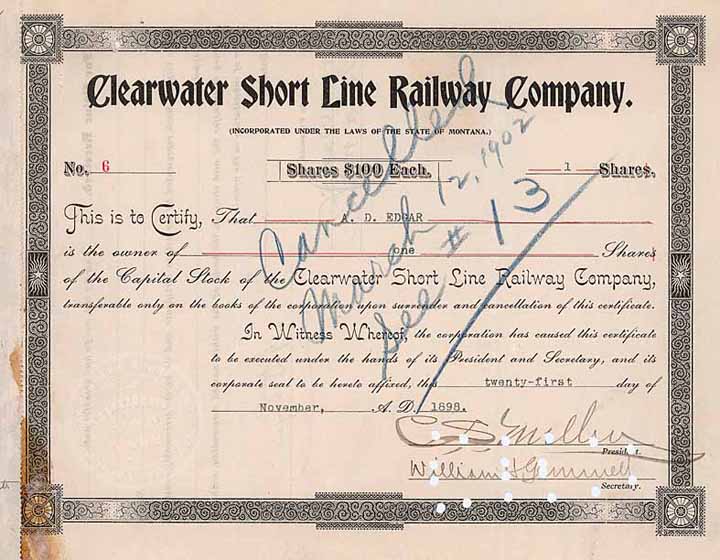 Clearwater Short Line Railway Company.
(INCORPORATED UNDER THE LAWS OF THE STATE OF MONTANA.)
No. 6 Shares $100 Each, 1 Shares,
This is to Certify, That A. D. EDGAR
is the owner of one Shares
of the Capital Stock of the Clearwater Short Line Railway Company,
transferable only on the books of the corporation upon surrender and cancellation of this certificate.
In Witness Whereof, the corporation has caused this certificate
to be executed under the hands of its President and Secretary, and its
corporate seal to be hereto affixed, this twenty-first day of
November, A. D. 1898.
President.
William Gemmell
Secretary.
Cancelled
March 12, 1902
See # 13